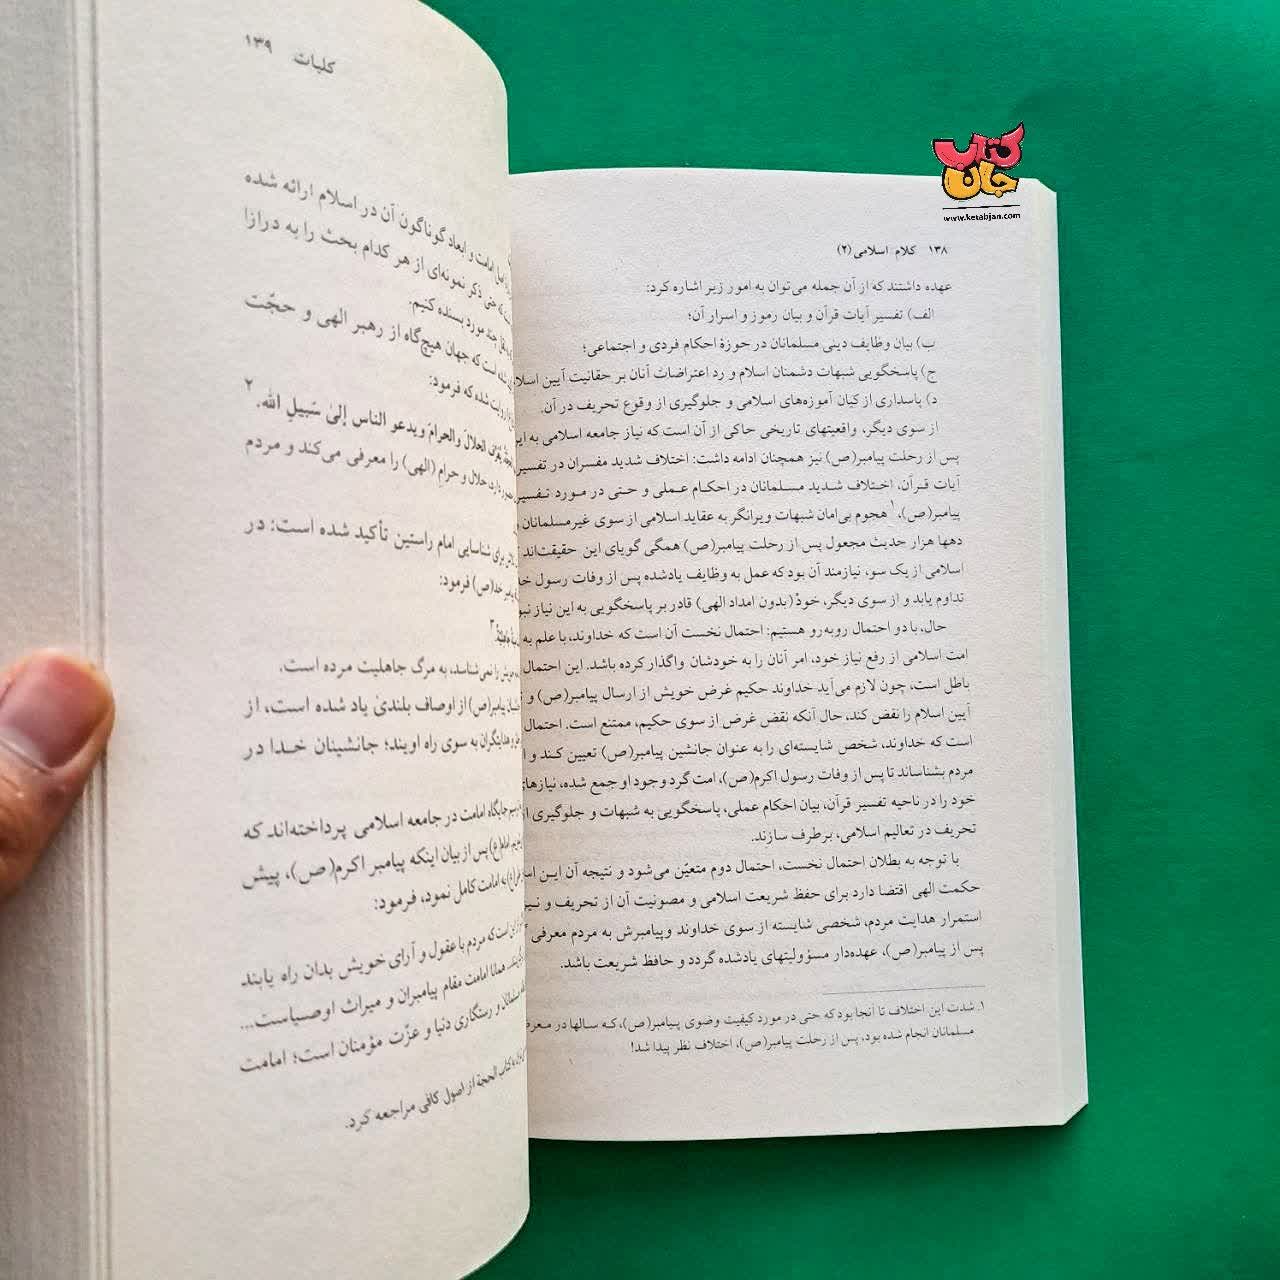 کتاب جان
www.ketabjan.com
۱۳۸ کلام اسلامی (۲)
عهده داشتند که از آن جمله می‌توان به امور زیر اشاره کرد:
الف) تفسیر آیات قرآن و بیان رموز و اسرار آن؛
ب) بیان وظایف دینی مسلمانان در حوزهٔ احکام فردی و اجتماعی؛
ج) پاسخگویی شبهات دشمنان اسلام و رد اعتراضات آنان بر حقانیت آیین
د) پاسداری از کیان آموزه‌های اسلامی و جلوگیری از وقوع تحریف در آن.
از سوی دیگر، واقعیتهای تاریخی حاکی از آن است که نیاز جامعه اسلامی به
پس از رحلت پیامبر(ص) نیز همچنان ادامه داشت: اختلاف شدید مفسران در
آیات قرآن، اختلاف شدید مسلمانان در احکام عملی و حتی در مورد
پیامبر(ص)،۱ هجوم بی‌امان شبهات ویرانگر به عقاید اسلامی از سوی غیرمسلمانان
دهها هزار حدیث مجعول پس از رحلت پیامبر(ص) همگی گویای این حقیقت‌اند
اسلامی از یک سو، نیازمند آن بود که عمل به وظایف یادشده پس از وفات رسول
تداوم یابد و از سوی دیگر، خودْ (بدون امداد الهی) قادر بر پاسخگویی به این نیاز
حال، با دو احتمال روبه‌رو هستیم: احتمال نخست آن است که خداوند، با علم به
امت اسلامی از رفع نیاز خود، امر آنان را به خودشان واگذار کرده باشد. این احتمال
باطل است، چون لازم می‌آید خداوند حکیم غرض خویش از ارسال پیامبر(ص) و
آیین اسلام را نقض کند، حال آنکه نقض غرض از سوی حکیم، ممتنع است. احتمال
است که خداوند، شخص شایسته‌ای را به عنوان جانشین پیامبر(ص) تعیین کند و
مردم بشناساند تا پس از وفات رسول اکرم(ص)، امت گرد وجود او جمع شده،
خود را در ناحیه تفسیر قرآن، بیان احکام عملی، پاسخگویی به شبهات و جلوگیری
تحریف در تعالیم اسلامی، برطرف سازند.
با توجه به بطلان احتمال نخست، احتمال دوم متعیّن می‌شود و نتیجه آن
حکمت الهی اقتضا دارد برای حفظ شریعت اسلامی و مصونیت آن از تحریف و
استمرار هدایت مردم، شخصی شایسته از سوی خداوند وپیامبرش به مردم معرفی
پس از پیامبر(ص)، عهده‌دار مسؤولیتهای یادشده گردد و حافظ شریعت باشد.
۱. شدت این اختلاف تا آنجا بود که حتی در مورد کیفیت وضوی پیامبر(ص)، که سالها در
مسلمانان انجام شده بود، پس از رحلت پیامبر(ص)، اختلاف نظر پیدا شد!
کلیات ۱۳۹
امامت و ابعاد گوناگون آن در اسلام ارائه شده
حتی ذکر نمونه‌ای از هر کدام بحث را به درازا
چند مورد بسنده کنیم.
است که جهان هیچ‌گاه از رهبر الهی و حجّت
روایت شده که فرمود:
الحلالَ والحرامَ ویدعو الناس إلیٰ سَبیلِ الله.۲
حلال و حرام (الهی) را معرفی می‌کند و مردم
برای شناسایی امام راستین تأکید شده است: در
خدا(ص) فرمود:
را نمی‌شناسد، به مرگ جاهلیت مرده است.
پیامبر(ص) از اوصاف بلندی یاد شده است، از
هدایتگران به سوی راه اویند؛ جانشینان خدا در
جایگاه امامت در جامعه اسلامی پرداخته‌اند که
پس از بیان اینکه پیامبر اکرم(ص)، پیش
امامت کامل نمود، فرمود:
است که مردم با عقول و آرای خویش بدان راه یابند
همانا امامت مقام پیامبران و میراث اوصیاست...
و رستگاری دنیا و عزّت مؤمنان است؛ امامت
کتاب الحجة از اصول کافی مراجعه کرد.